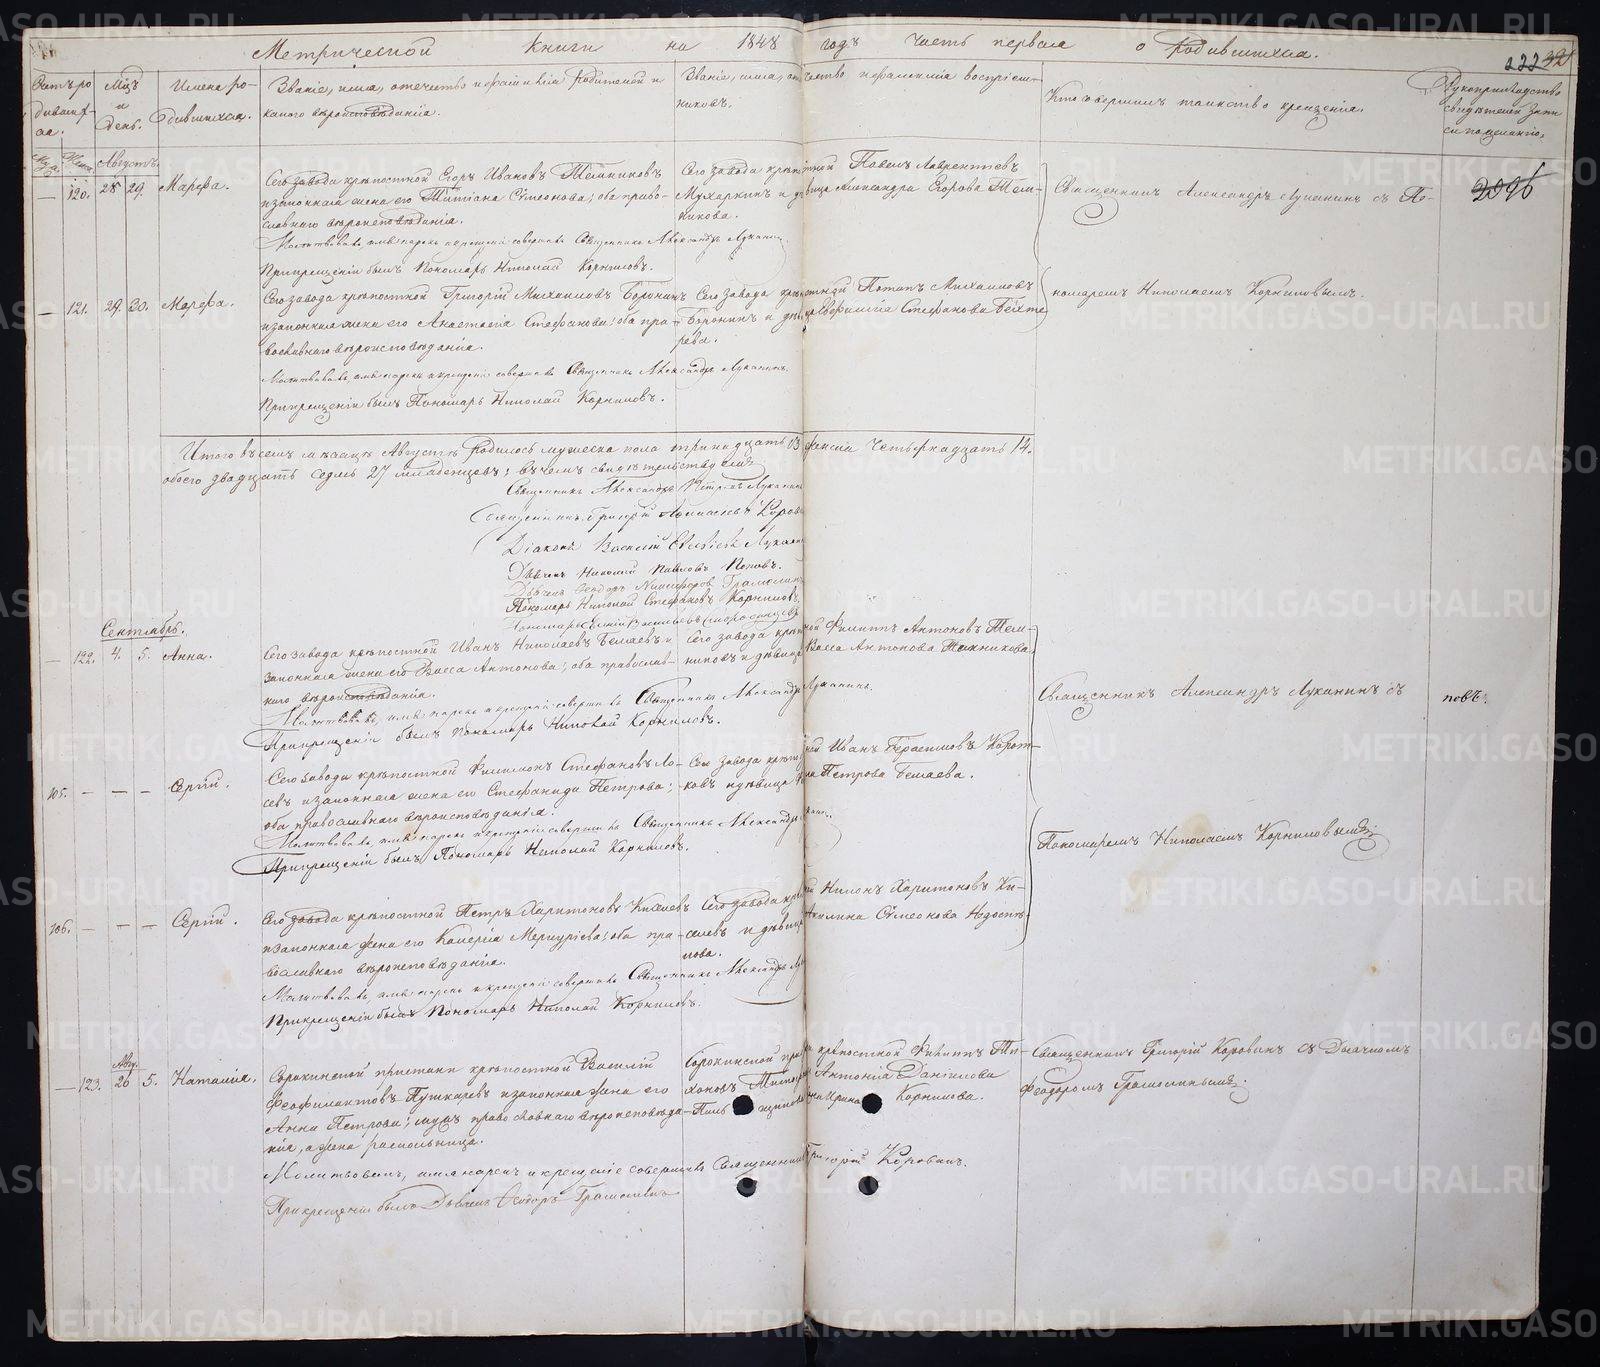 Метрической книги на 1848 годъ часть первая о родившихся.
222
Счетъ родившихся.
Мцъ и день.
Имена родившихся.
Званіе, имя, отечество и фамилія родителей и какого вѣроисповѣданія.
Званіе, имя, отчество и фамилія воспріемниковъ.
Кто совершилъ таинство крещенія.
Рукоприкладство свидѣтелей записи по желанію.
Августъ.
120. 28 29. Марѳа.
Сего завода крѣпостной Егоръ Ивановъ Темниковъ
и законная жена его Татіана Сѵмеонова; оба право-
славнаго вѣроисповѣданія.
Молитвовалъ, имя нарекъ и крещеніе совершилъ Священникъ Александръ Луканинъ.
При крещеніи былъ Пономарь Николай Корниловъ.
Сего завода крѣпостной Павелъ Лаврентьевъ
и дѣвица Александра Егорова Тем-
никова.
Священникъ Александръ Луканинъ съ По-
121. 29. 30. Марѳа.
Сего завода крѣпостной Григорій Михаиловъ Боронинъ
и законная жена его Анастасія Стефанова; оба пра-
вославнаго вѣроисповѣданія.
Молитвовалъ, имя нарекъ и крещеніе совершилъ Священникъ Александръ Луканинъ.
При крещеніи былъ Пономарь Николай Корниловъ.
Сего завода крѣпостной Потапъ Михаиловъ
Боронинъ и дѣвица Евфимія Стефанова
рева.
номаремъ Николаемъ Корниловымъ.
Итого въ семъ мѣсяцѣ Августѣ родилось мужеска пола тринадцать 13 женска четырнадцать 14.
обоего двадцать седмь 27 младенцевъ; въ чемъ свидѣтельствуемъ
Священникъ Александръ Петровъ Луканинъ
Священникъ Григорій Коров
Діаконъ Василій Лукан
Дьячекъ Николай Павловъ Поповъ.
Дьячекъ Ѳеодоръ Никифоровъ Грамолинъ
Пономарь Николай Стефановъ Корниловъ.
Пономарь Васильевъ
Сентябрь.
122. 4. 5. Анна.
Сего завода крѣпостной Иванъ Николаевъ Беляевъ и
законная жена его Васса Антонова; оба православ-
наго вѣроисповѣданія.
Молитвовалъ, имя нарекъ и крещеніе совершилъ Священникъ Александръ Луканинъ.
При крещеніи былъ Пономарь Николай Корниловъ.
Сего завода крѣпостной Филиппъ Антоновъ Тем-
никовъ и дѣвица Васса Антонова Темникова.
Священникъ Александръ Луканинъ съ
105. — — — Сергій.
Сего завода крѣпостной Филимонъ Стефановъ Ло-
севъ и законная жена его Стефанида Петрова;
оба православнаго вѣроисповѣданія.
Молитвовалъ, имя нарекъ и крещеніе совершилъ Священникъ Александръ
При крещеніи былъ Пономарь Николай Корниловъ.
Сего завода крѣпостной Иванъ Герасимовъ Корот-
ковъ и дѣвица Петрова Беляева.
Пономаремъ Николаемъ Корниловымъ.
106. — — — Сергій.
Сего завода крѣпостной Петръ Харитоновъ Киселевъ
и законная жена его Калерія Меркуріева; оба пра-
вославнаго вѣроисповѣданія.
Молитвовалъ, имя нарекъ и крещеніе совершилъ Священникъ Александръ
При крещеніи былъ Пономарь Николай Корниловъ.
Сего завода крѣпостной Никонъ Харитоновъ Ки-
селевъ и дѣвица Акилина Сѵмеонова Недоспѣ-
лова.
Авгу.
123. 26 5. Наталія.
Сорокинской пристани крѣпостной Василій
Феофилактовъ Пушкаревъ и законная жена его
Анна Петрова; мужъ православнаго вѣроисповѣда-
нія, а жена раскольница.
Молитвовалъ, имя нарекъ и крещеніе совершилъ Священникъ Григорій Коровинъ.
При крещеніи былъ Дьячекъ Ѳеодоръ Грамолинъ
Сорокинской крѣпостной Филиппъ Ти-
хоновъ Антонія Данілова
Ирина Корнилова.
Священникъ Григорій Коровинъ съ Дьячкомъ
Феодоромъ Грамолинымъ.
METRIKI.GASO-URAL.RU